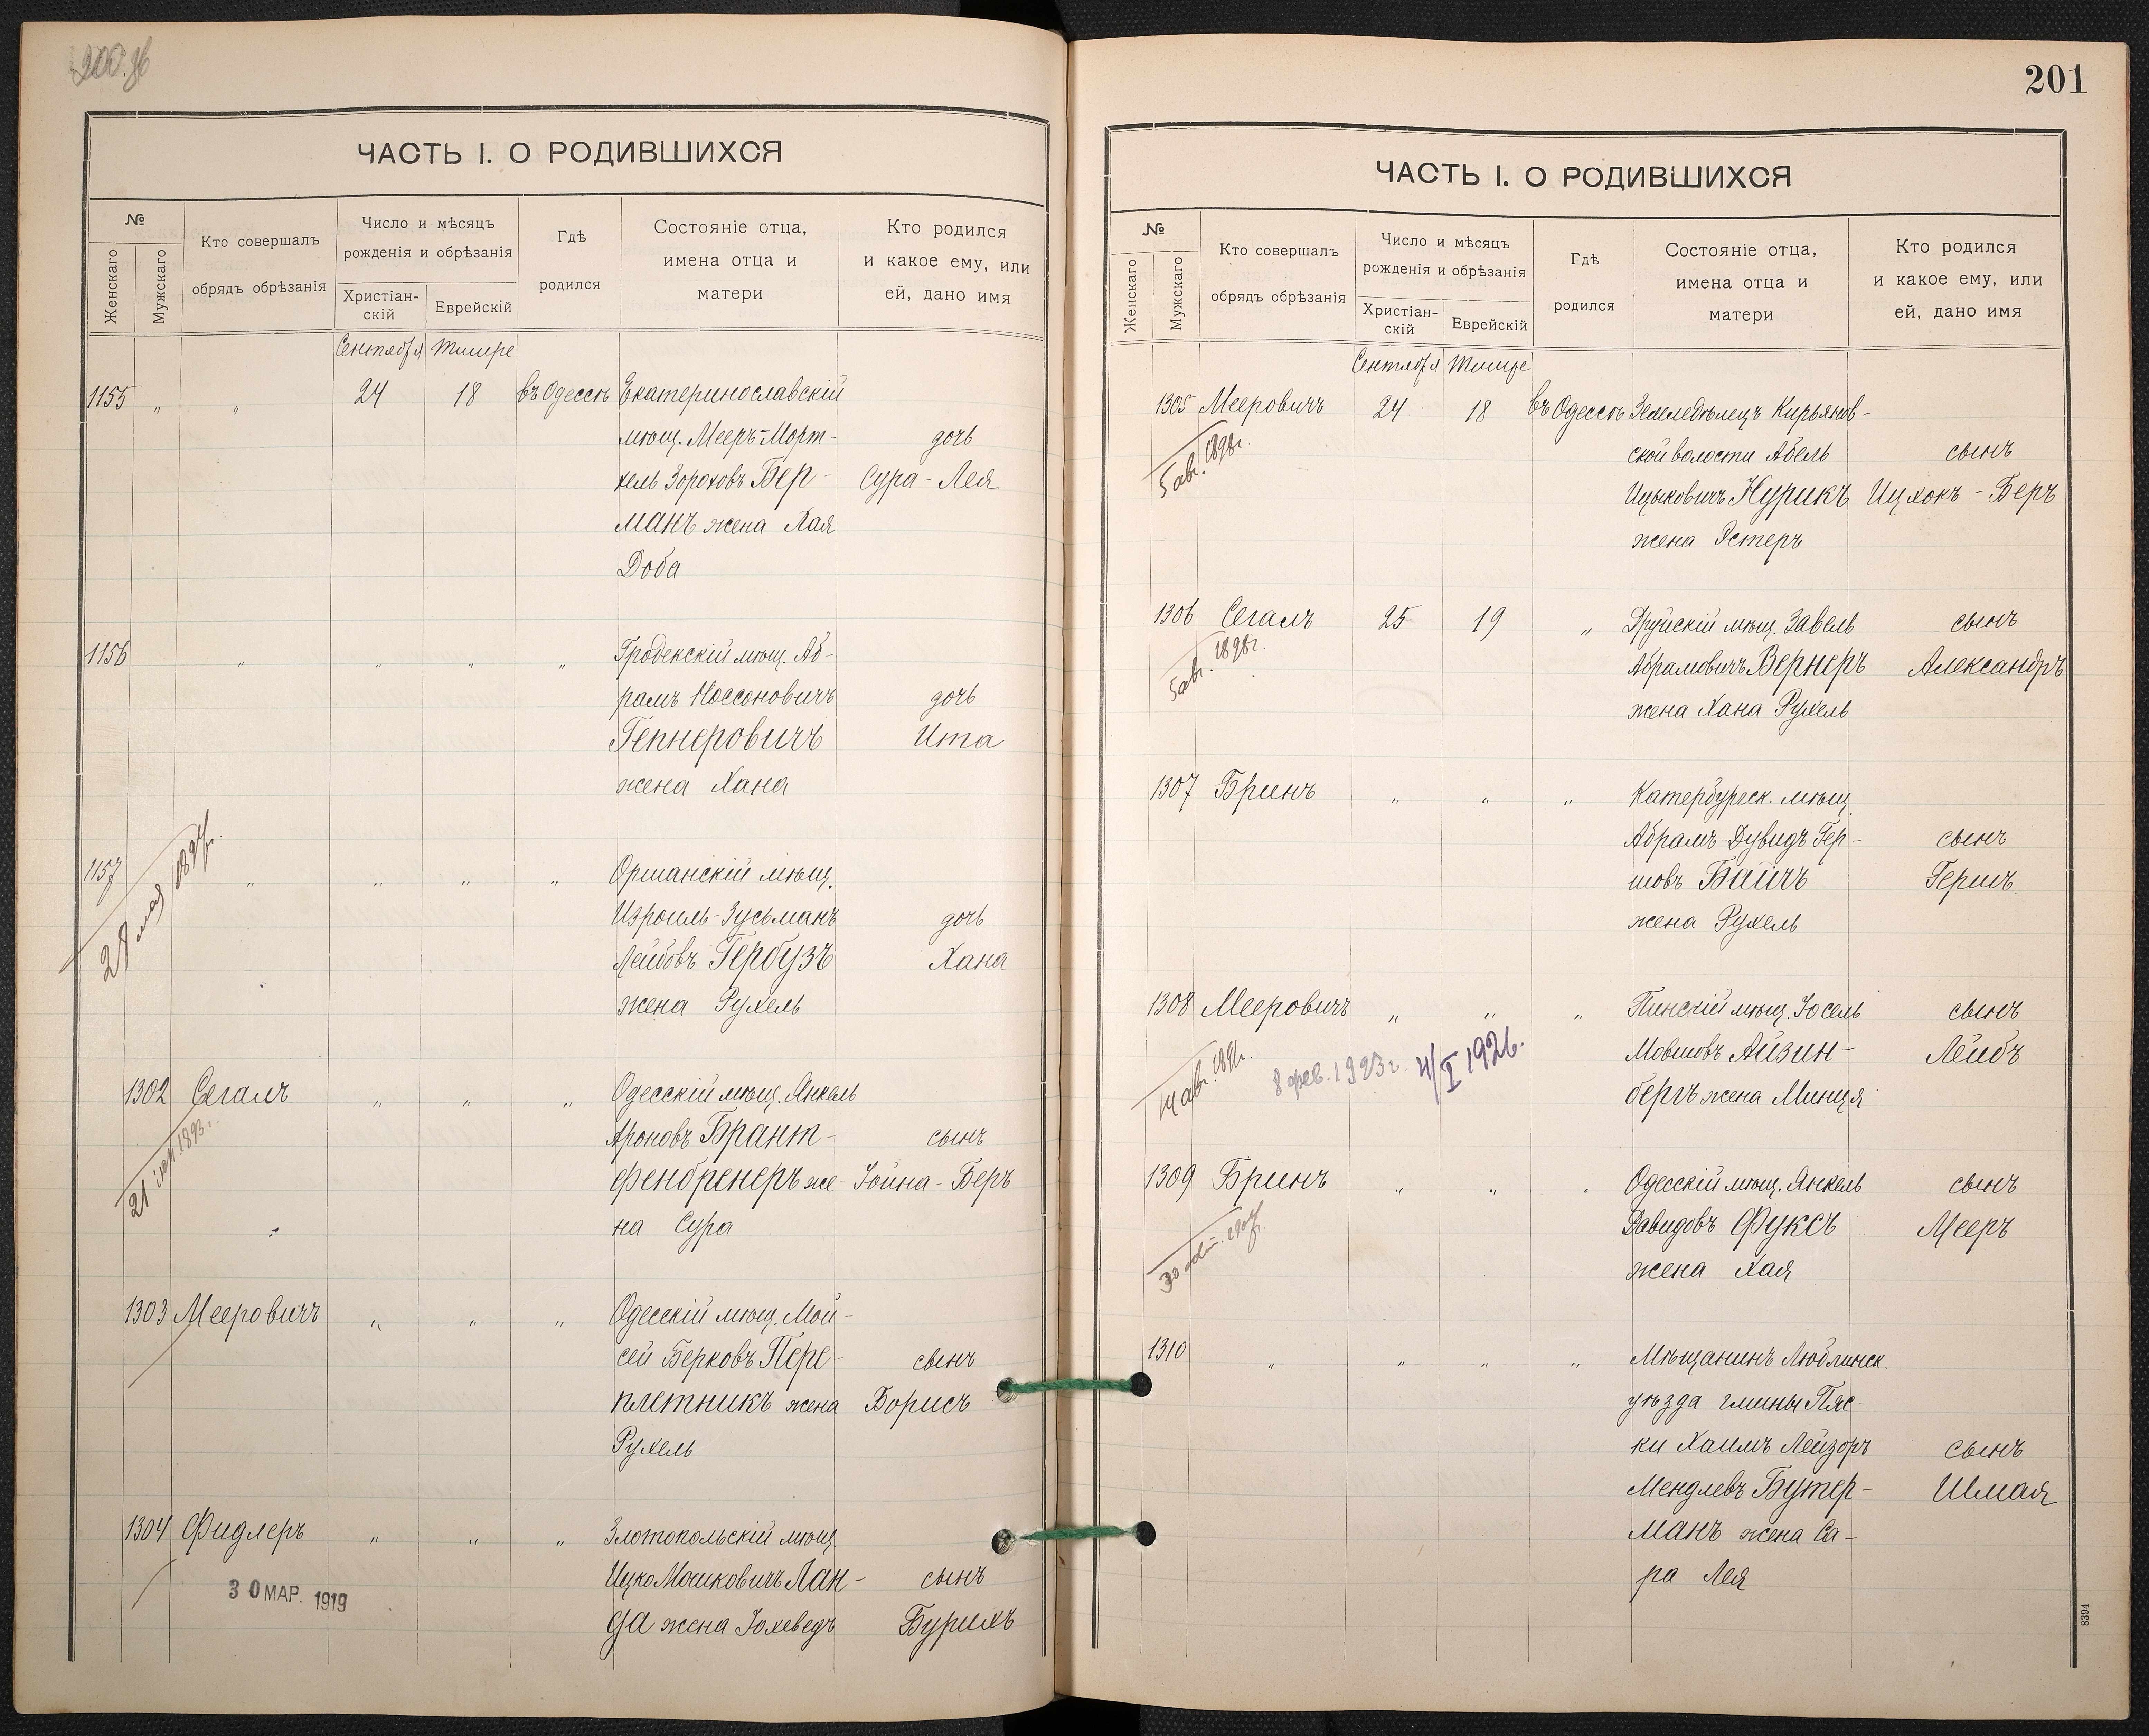 200об
ЧАСТЬ I. О РОДИВШИХСЯ
№
Женскаго
Мужскаго
Кто совершалъ
обрядъ обрѣзанія
Число и мѣсяцъ
рожденія и обрѣзанія
Христіан-
скій
Еврейскій
Гдѣ
родился
Состояніе отца,
имена отца и
матери
Кто родился
и какое ему, или
ей, дано имя
Сентября Тишре
1155 „ „ 24 18 въ Одессѣ Екатеринославскій
мѣщ. Мееръ-Морт-
хель Зороховъ Бер- дочь
манъ жена Хая Сура-Лея
Доба
1156 „ „ „ „ Гродекскій мѣщ. Аб-
рамъ Носсоновичъ дочь
Гепнеровичъ Ита
жена Хана
1157 „ „ „ „ Оршанскій мѣщ.
Изроиль-Зусьманъ дочь
Лейбовъ Гербузъ Хана
жена Рухель
мая
1302 Сегалъ „ „ „ Одесскій мѣщ. Янкель
Ароновъ Брант- сынъ
фенбренеръ же- Іойна-Беръ
на Сура
21 1893г.
1303 Мееровичъ „ „ „ Одесскій мѣщ. Мой-
сей Берковъ Пере- сынъ
плетникъ жена Борисъ
Рухель
1304 Фидлеръ „ „ „ Злотопольскій мѣщ.
Ицко Мошковичъ Лан- сынъ
да жена Іохеведъ Бурихъ
30 МАР. 1919
201
ЧАСТЬ I. О РОДИВШИХСЯ
№
Женскаго
Мужскаго
Кто совершалъ
обрядъ обрѣзанія
Число и мѣсяцъ
рожденія и обрѣзанія
Христіан-
скій
Еврейскій
Гдѣ
родился
Состояніе отца,
имена отца и
матери
Кто родился
и какое ему, или
ей, дано имя
Сентября Тишре
1305 Мееровичъ 24 18 въ Одессѣ Земледѣлецъ Кирьянов-
ской волости Абель сынъ
Ицыковичъ Нурикъ Ицхокъ-Беръ
жена Эстеръ
5 авг. 1898г.
1306 Сегалъ 25 19 „ Друйскій мѣщ. Завель сынъ
Абрамовичъ Вернеръ Александръ
жена Хана Рухель
5 авг. 1898г.
1307 Бринъ „ „ „ Катербургск. мѣщ.
Абрамъ-Дувидъ Гер- сынъ
шовъ Байчъ Гершъ
жена Рухель
1308 Мееровичъ „ „ „ Пинскій мѣщ. Іосель сынъ
Мовшовъ Айзин- Лейбъ
бергъ жена Минця
14 авг. 189
8 фев. 1923г. 4/I 1926.
1309 Бринъ „ „ „ Одесскій мѣщ. Янкель сынъ
Давидовъ Фуксъ Мееръ
жена Хая
30
1310 „ „ „ „ Мѣщанинъ Люблинск.
уѣзда гмины Пяс-
ки Хаимъ Лейзоръ сынъ
Мендлевъ Бутер- Шмая
манъ жена Са-
ра Лея
8394